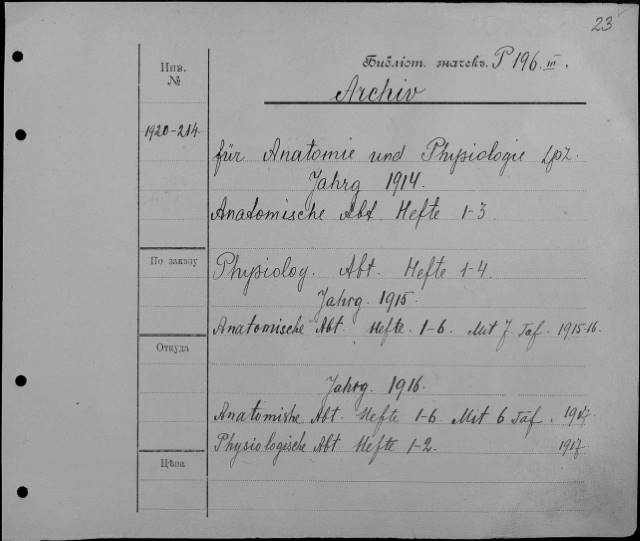 23
Инв. №
Библіот. значекъ. P 196. III.
Archiv
1920-214.
für Anatomie und Physiologie Lpz.
Jahrg 1914.
Anatomische Abt. Hefte 1-3
По заказу
Physiolog. Abt. Hefte 1-4.
Jahrg. 1915.
Anatomische Abt. Hefte. 1-6. Mit 7. Taf. 1915-16.
Откуда
Jahrg. 1916.
Anatomishe Abt. Hefte 1-6. Mit 6 Taf. 1917.
Physiologische Abt Hefte 1-2. 1917.
Цѣна